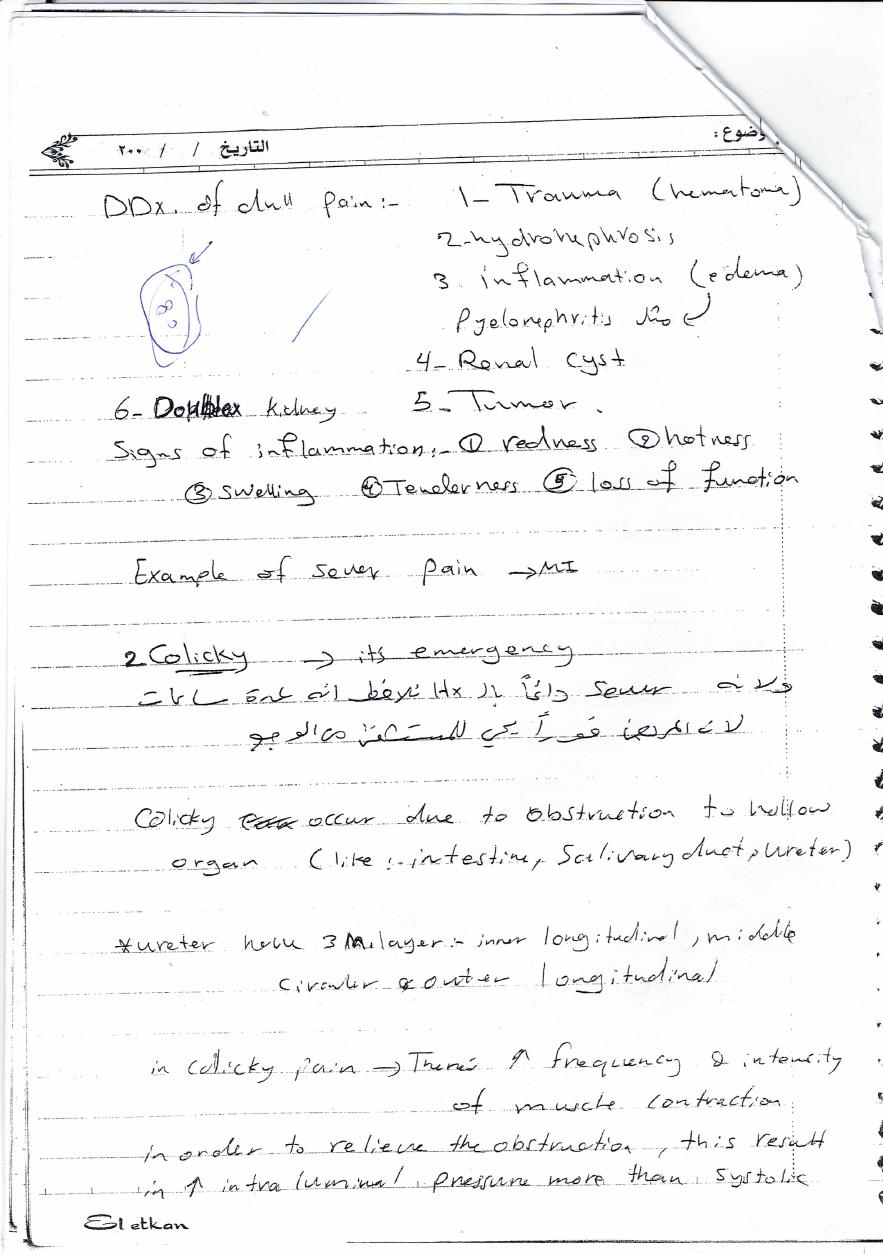 وضوع:
التاريخ / / ٢٠٠
DDx. of dull pain:- 1- Trauma (hematoma)
2-hydronephrosis
3. inflammation (edema)
Pyelonephritis مثل
4- Renal cyst
5- Tumor.
6- Dopplex kidney
Signs of inflammation:- ① redness ② hotness
③ swelling ④ Tenderness ⑤ loss of function
Example of sever pain → MI
2 Colicky → its emergency
ولانه sever دائماً بالـ Hx نلاحظ انه عدة ساعات
لانه المريض فوراً يجي للمستشفى من الوجع
Colicky occur due to obstruction to hollow
organ (like :- intestine, Salivary duct, ureter)
*ureter have 3 M. layer:- inner longitudinal, middle
circuler & outer longitudinal
in colicky pain → There's ↑ frequency & intensity
of muscle contraction
in order to relieve the obstruction, this result
in ↑ intra luminal pressure more than systolic
El etkan